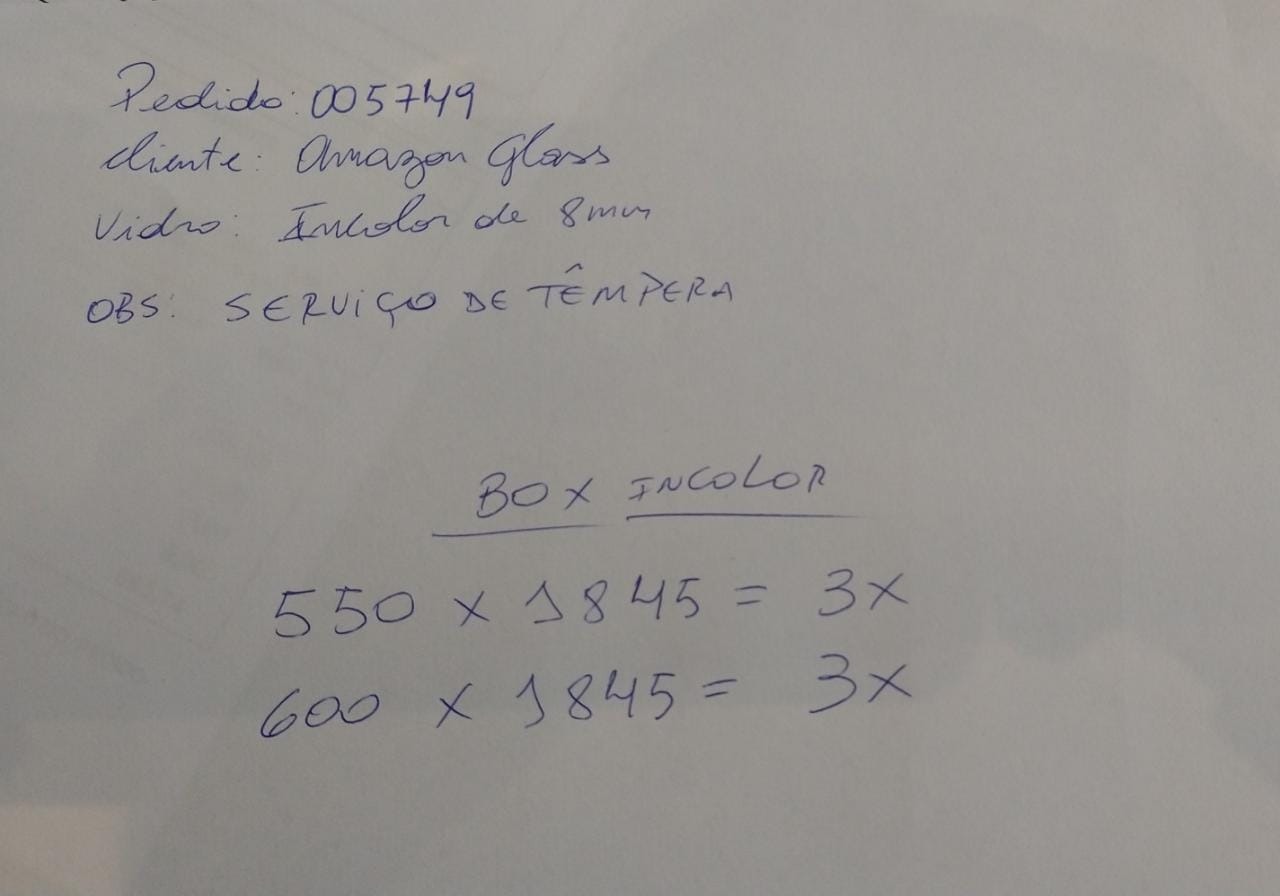 Pedido: 005749
cliente: Amazon Glass
Vidro: Incolor de 8mm
OBS: SERVIÇO DE TÊMPERA
BOX INCOLOR
550 x 1845 = 3x
600 x 1845 = 3x